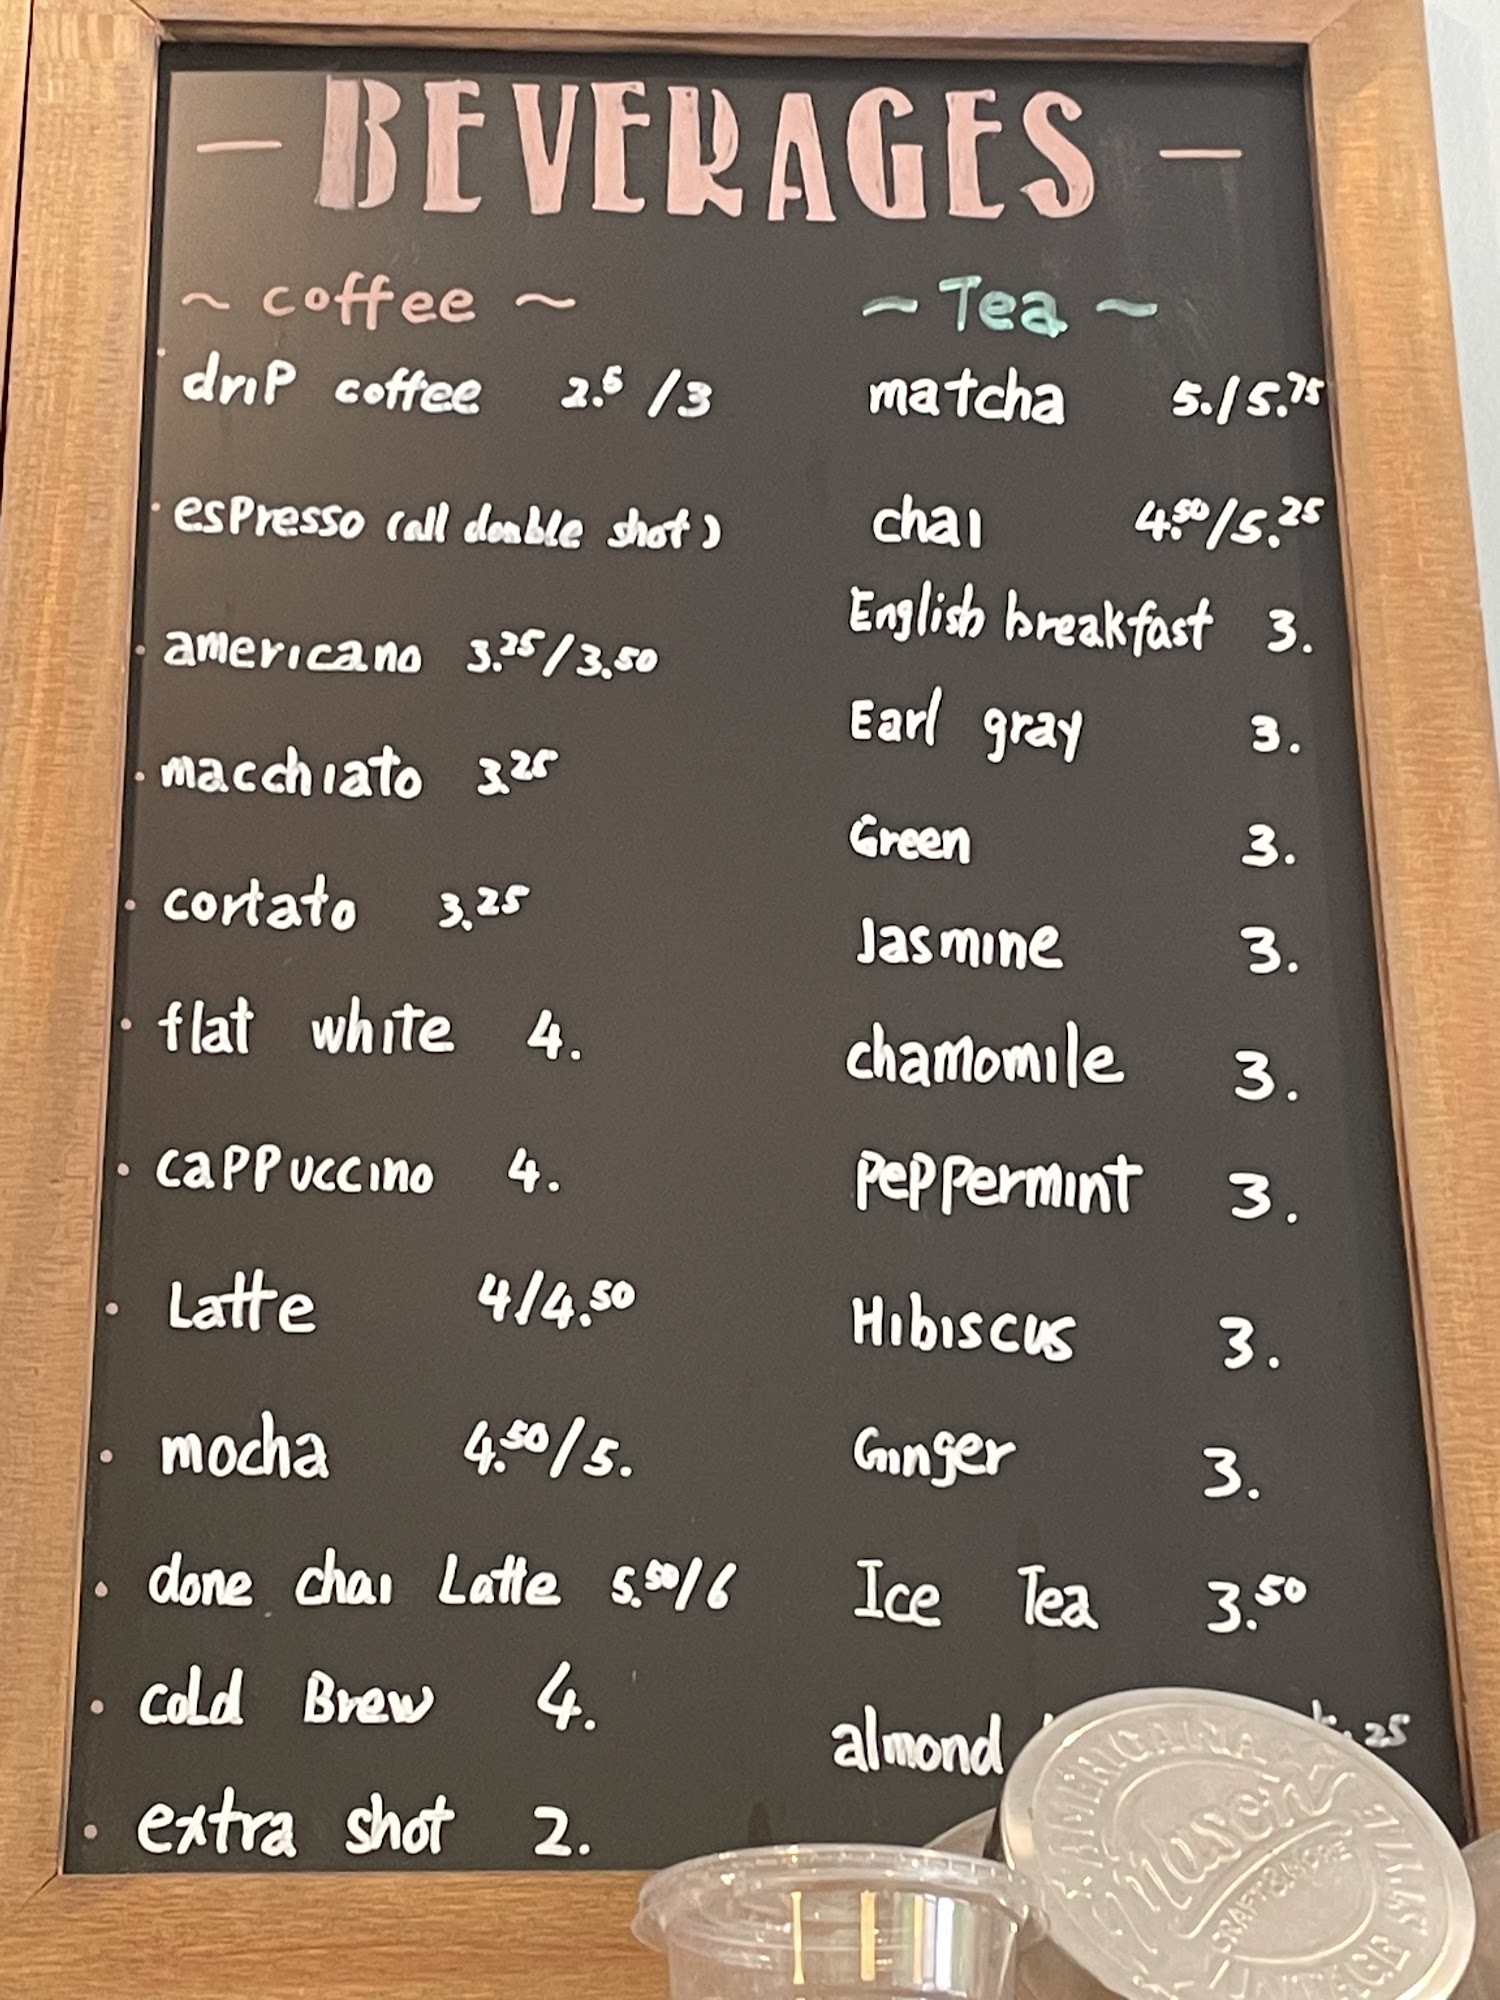 — BEVERAGES —
~ coffee ~
drip coffee 2.5 /3
espresso (all double shot)
americano 3.25/3.50
macchiato 3.25
cortato 3.25
flat white 4.
cappuccino 4.
Latte 4/4.50
mocha 4.50/5.
done chai Latte 5.50/6
cold Brew 4.
extra shot 2.
~ Tea ~
matcha 5./5.75
chai 4.50/5.25
English breakfast 3.
Earl gray 3.
Green 3.
Jasmine 3.
chamomile 3.
peppermint 3.
Hibiscus 3.
Ginger 3.
Ice Tea 3.50
almond .25
AMERICANA
Mason
CRAFT & MORE
VINTAGE